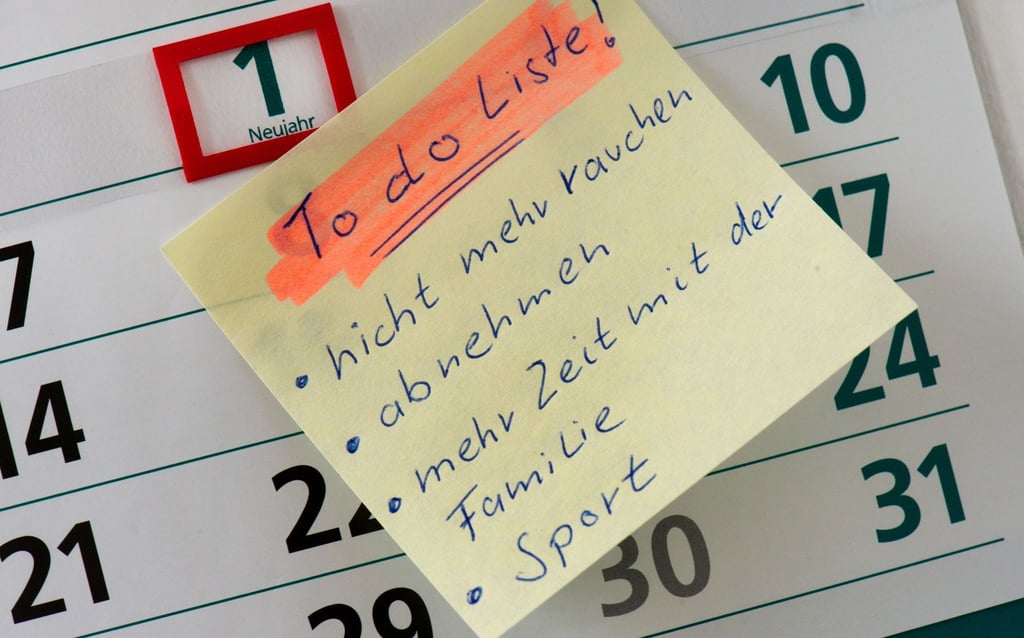 1
Neujahr
To do Liste!
• nicht mehr rauchen
• abnehmen
• mehr Zeit mit der
Familie
• Sport
10
7
17
14
24
21
22
30
31
29